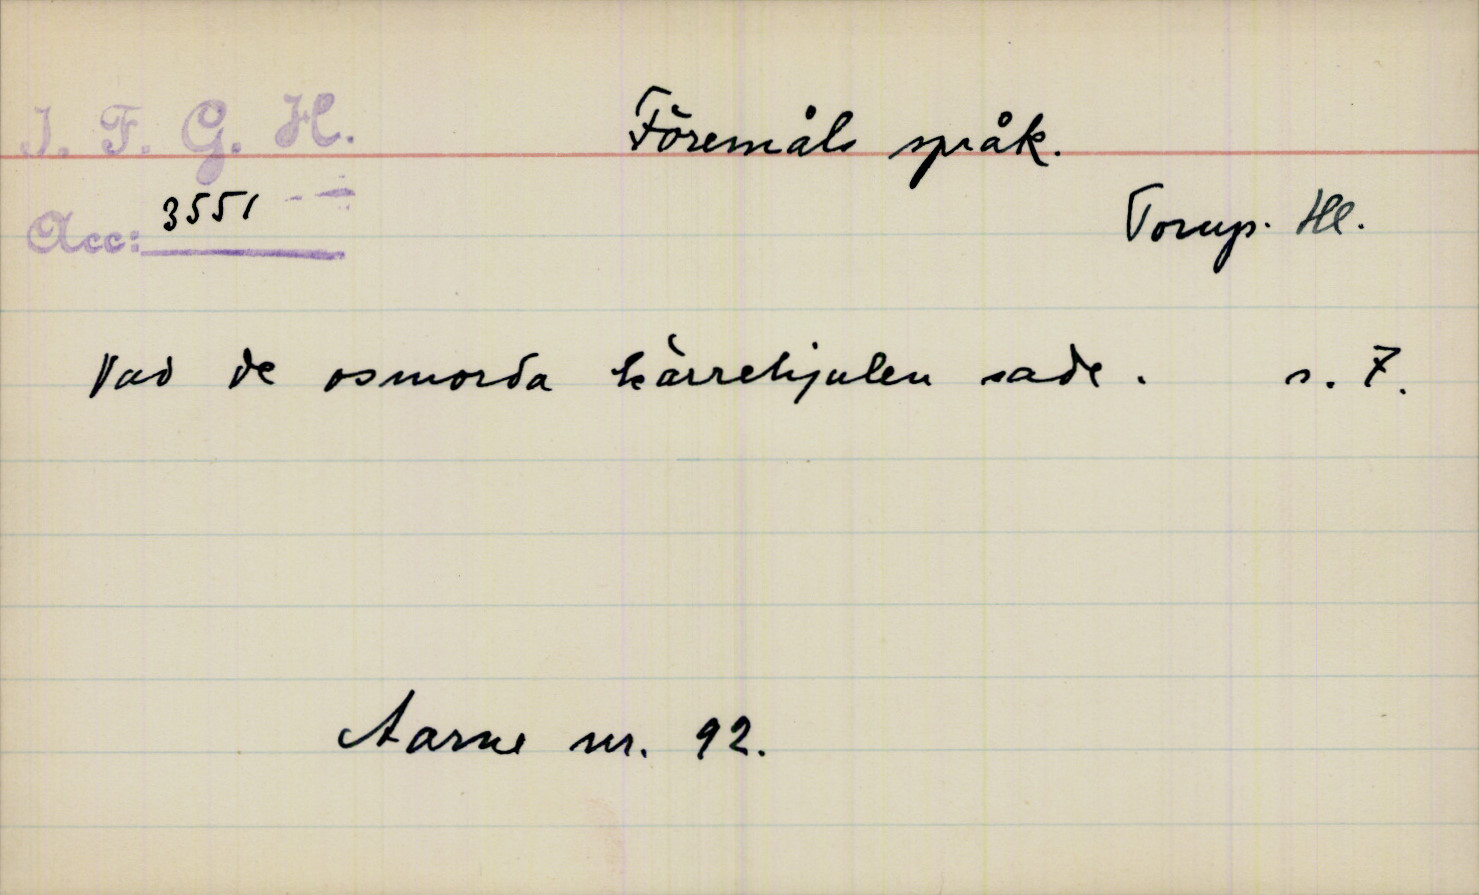 I. F. G. H.
Föremåls språk.
Acc: 3551
Torup. Hl.
Vad de osmorda kärrehjulen sade. s. 7.
Aarne nr. 92.